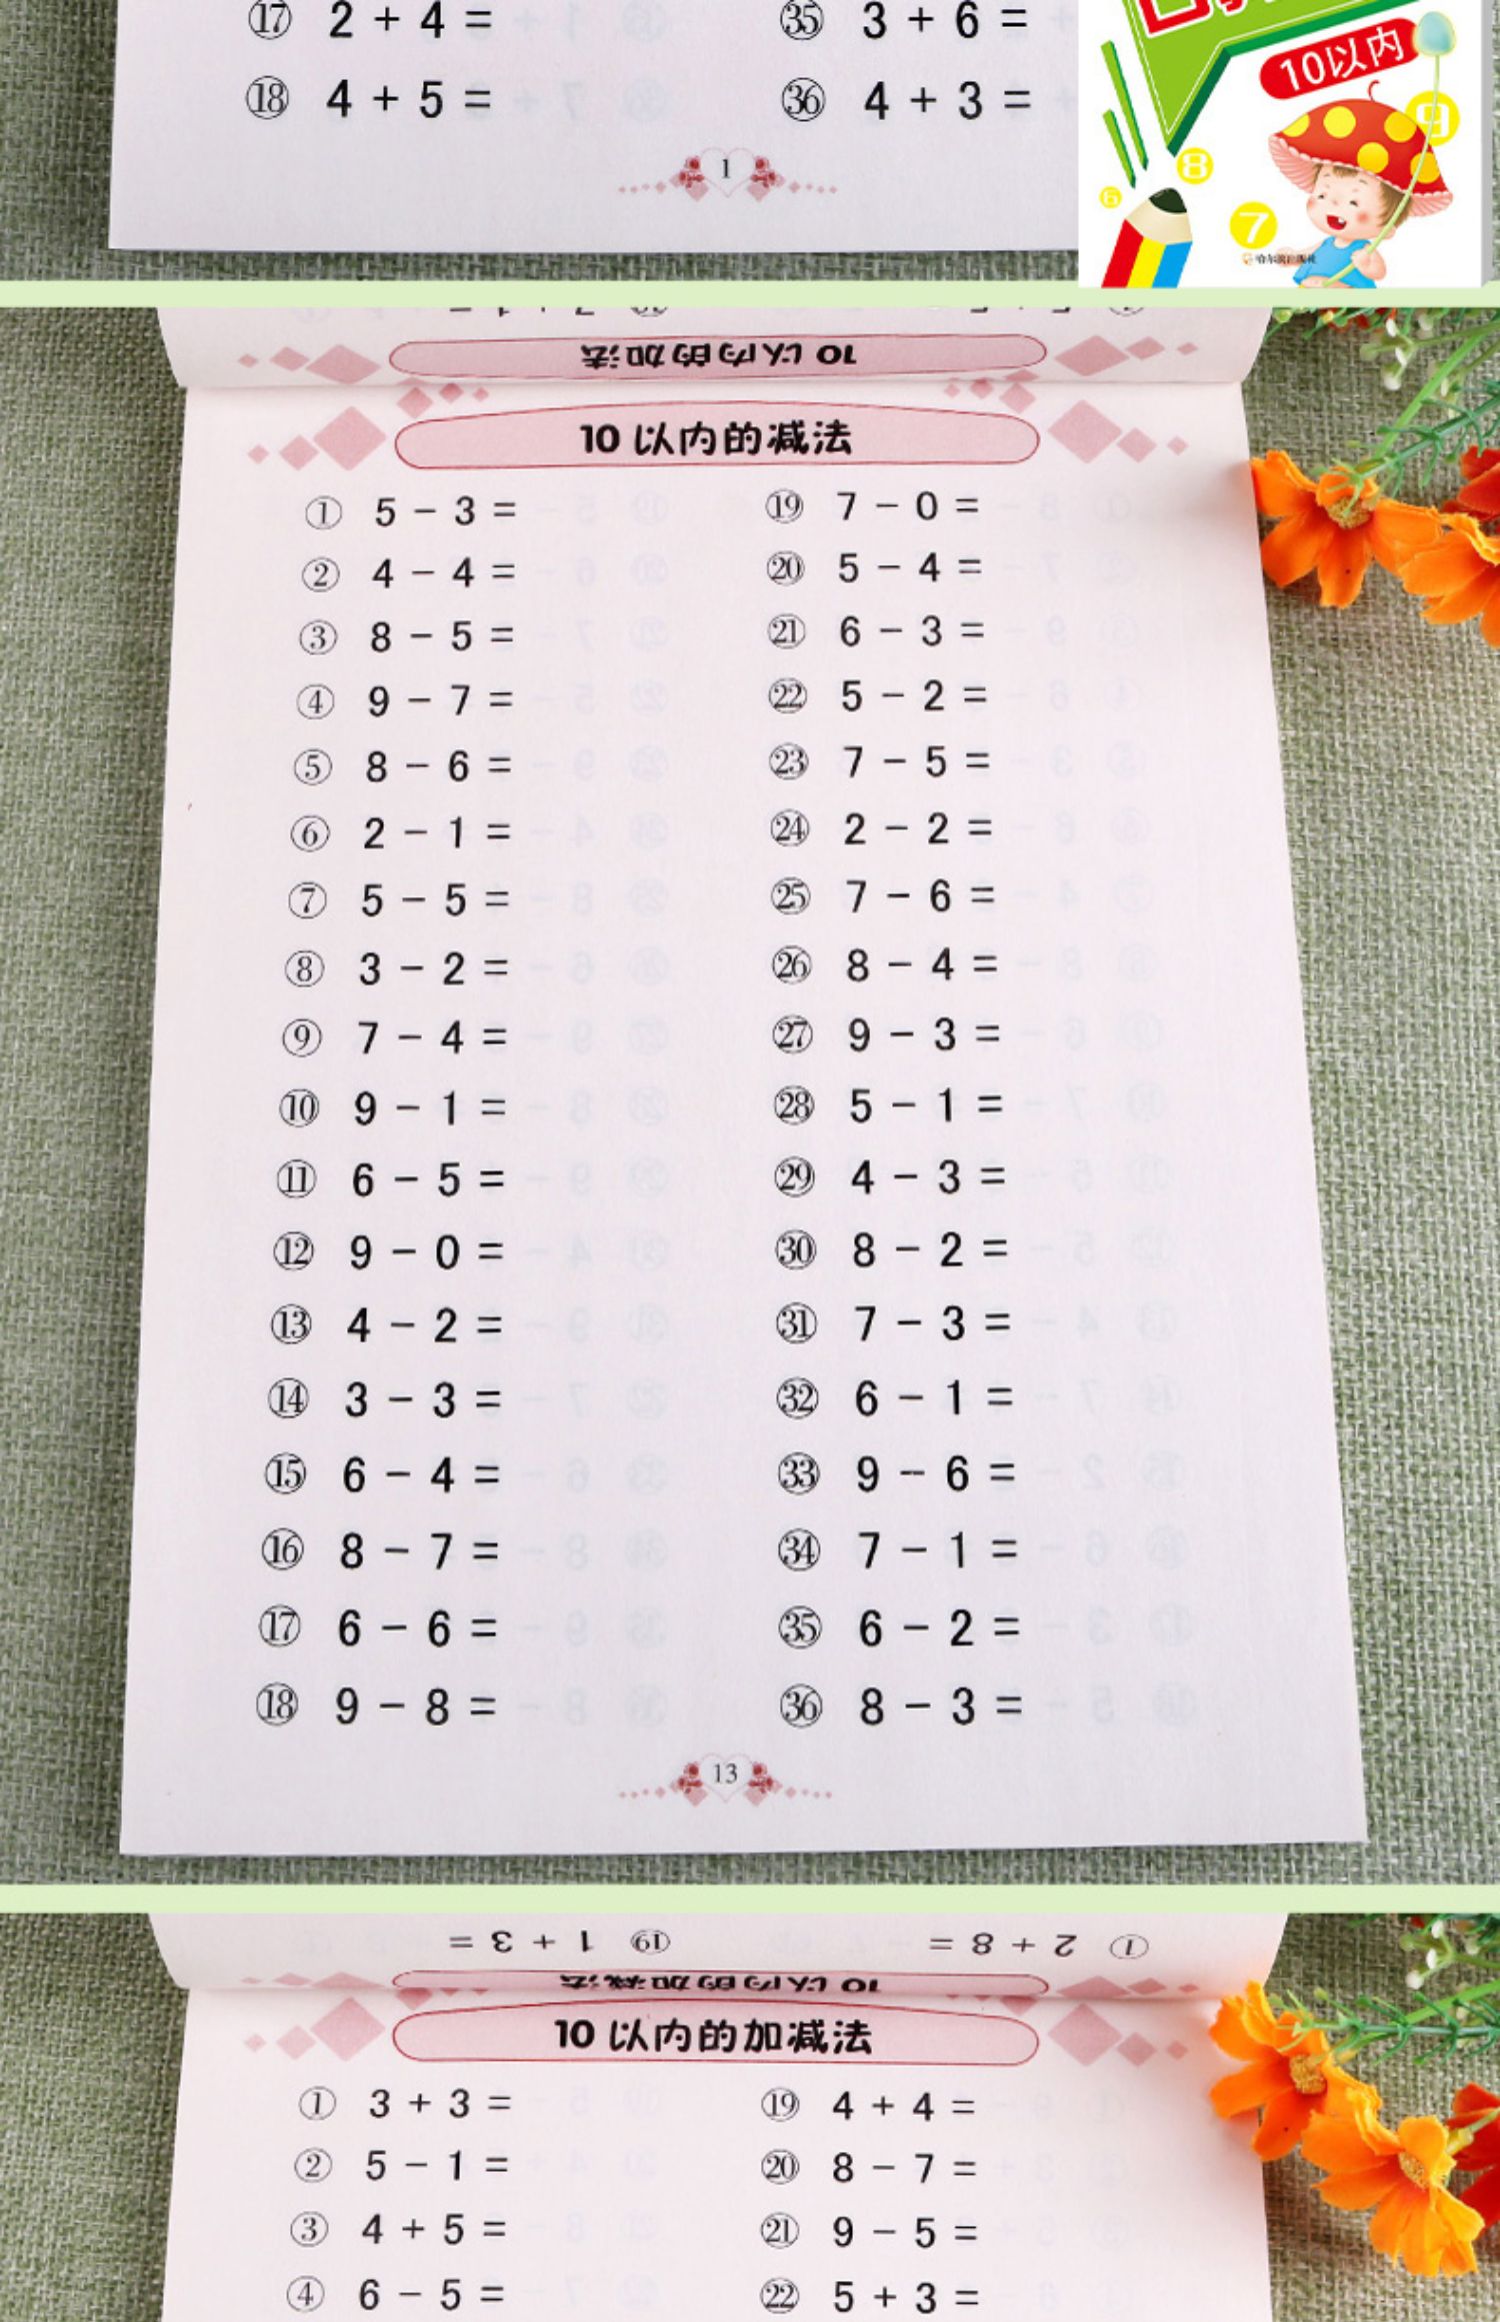 ⑰ 2 + 4 =
㉟ 3 + 6 =
⑱ 4 + 5 =
㊱ 4 + 3 =
1
10以内
9
8
6
7
哈尔滨出版社
10 以内的加法
10 以内的减法
① 5 - 3 =
⑲ 7 - 0 =
② 4 - 4 =
⑳ 5 - 4 =
③ 8 - 5 =
㉑ 6 - 3 =
④ 9 - 7 =
㉒ 5 - 2 =
⑤ 8 - 6 =
㉓ 7 - 5 =
⑥ 2 - 1 =
㉔ 2 - 2 =
⑦ 5 - 5 =
㉕ 7 - 6 =
⑧ 3 - 2 =
㉖ 8 - 4 =
⑨ 7 - 4 =
㉗ 9 - 3 =
⑩ 9 - 1 =
㉘ 5 - 1 =
⑪ 6 - 5 =
㉙ 4 - 3 =
⑫ 9 - 0 =
㉚ 8 - 2 =
⑬ 4 - 2 =
㉛ 7 - 3 =
⑭ 3 - 3 =
㉜ 6 - 1 =
⑮ 6 - 4 =
㉝ 9 - 6 =
⑯ 8 - 7 =
㉞ 7 - 1 =
⑰ 6 - 6 =
㉟ 6 - 2 =
⑱ 9 - 8 =
㊱ 8 - 3 =
13
① 2 + 8 =
⑲ 1 + 3 =
10 以内的加减法
10 以内的加减法
① 3 + 3 =
⑲ 4 + 4 =
② 5 - 1 =
⑳ 8 - 7 =
③ 4 + 5 =
㉑ 9 - 5 =
④ 6 - 5 =
㉒ 5 + 3 =